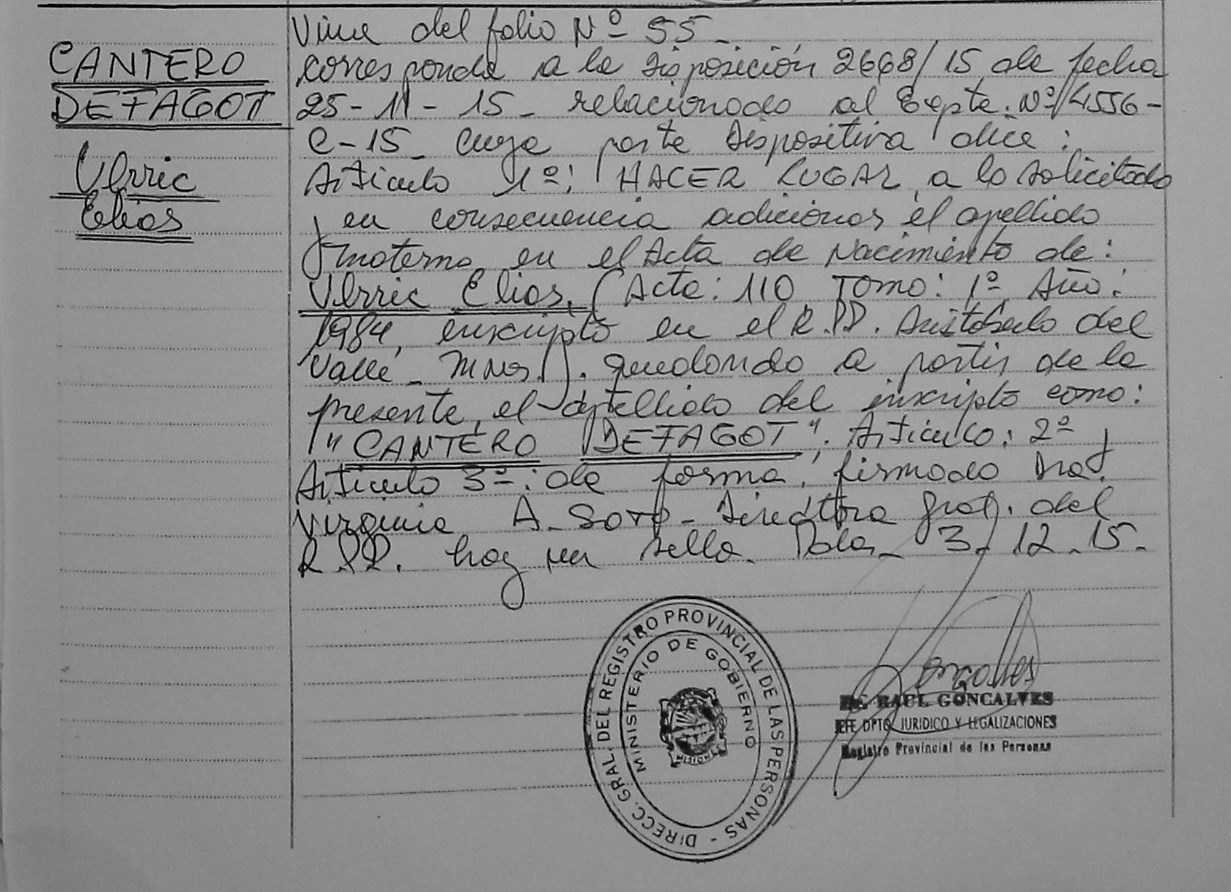 CANTERO
DEFAGOT
Ulrric
Elias
Viene del folio Nº 55_
corresponde a la Disposición 2668/15 de fecha
25-11-15_ relacionado al Expte. Nº 4556-
C-15_ cuya parte Dispositiva dice:
Artículo 1º: HACER LUGAR a lo solicitado
y en consecuencia adicionar el apellido
materno en el Acta de Nacimiento de:
Ulrric Elias. (Acta: 110 Tomo: 1º Año:
1984, inscripto en el R.P.P. Aristóbulo del
Valle_ Mnes). quedando a partir de la
presente, el apellido del inscripto como:
"CANTERO DEFAGOT". Artículo: 2º y
Artículo 3º: de forma, firmado Dra.
Virginia A. Soto_ Directora Gral. del
R.P.P. hay un sello. Pdas_ 3-12-15.
DIRECC. GRAL. DEL REGISTRO PROVINCIAL DE LAS PERSONAS -
MINISTERIO DE GOBIERNO
MISIONES
Goncalves
Dr. RAUL GONCALVES
JEFE DPTO. JURIDICO Y LEGALIZACIONES
Registro Provincial de las Personas